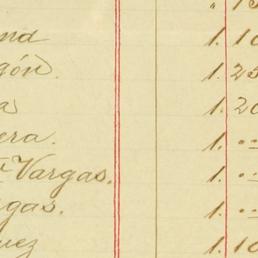 " 15
nd 1. 10
gón. 1. 25
a 1. 20
era. 1. "
Vargas. 1. "
gas. 1. "
uez 1. 10